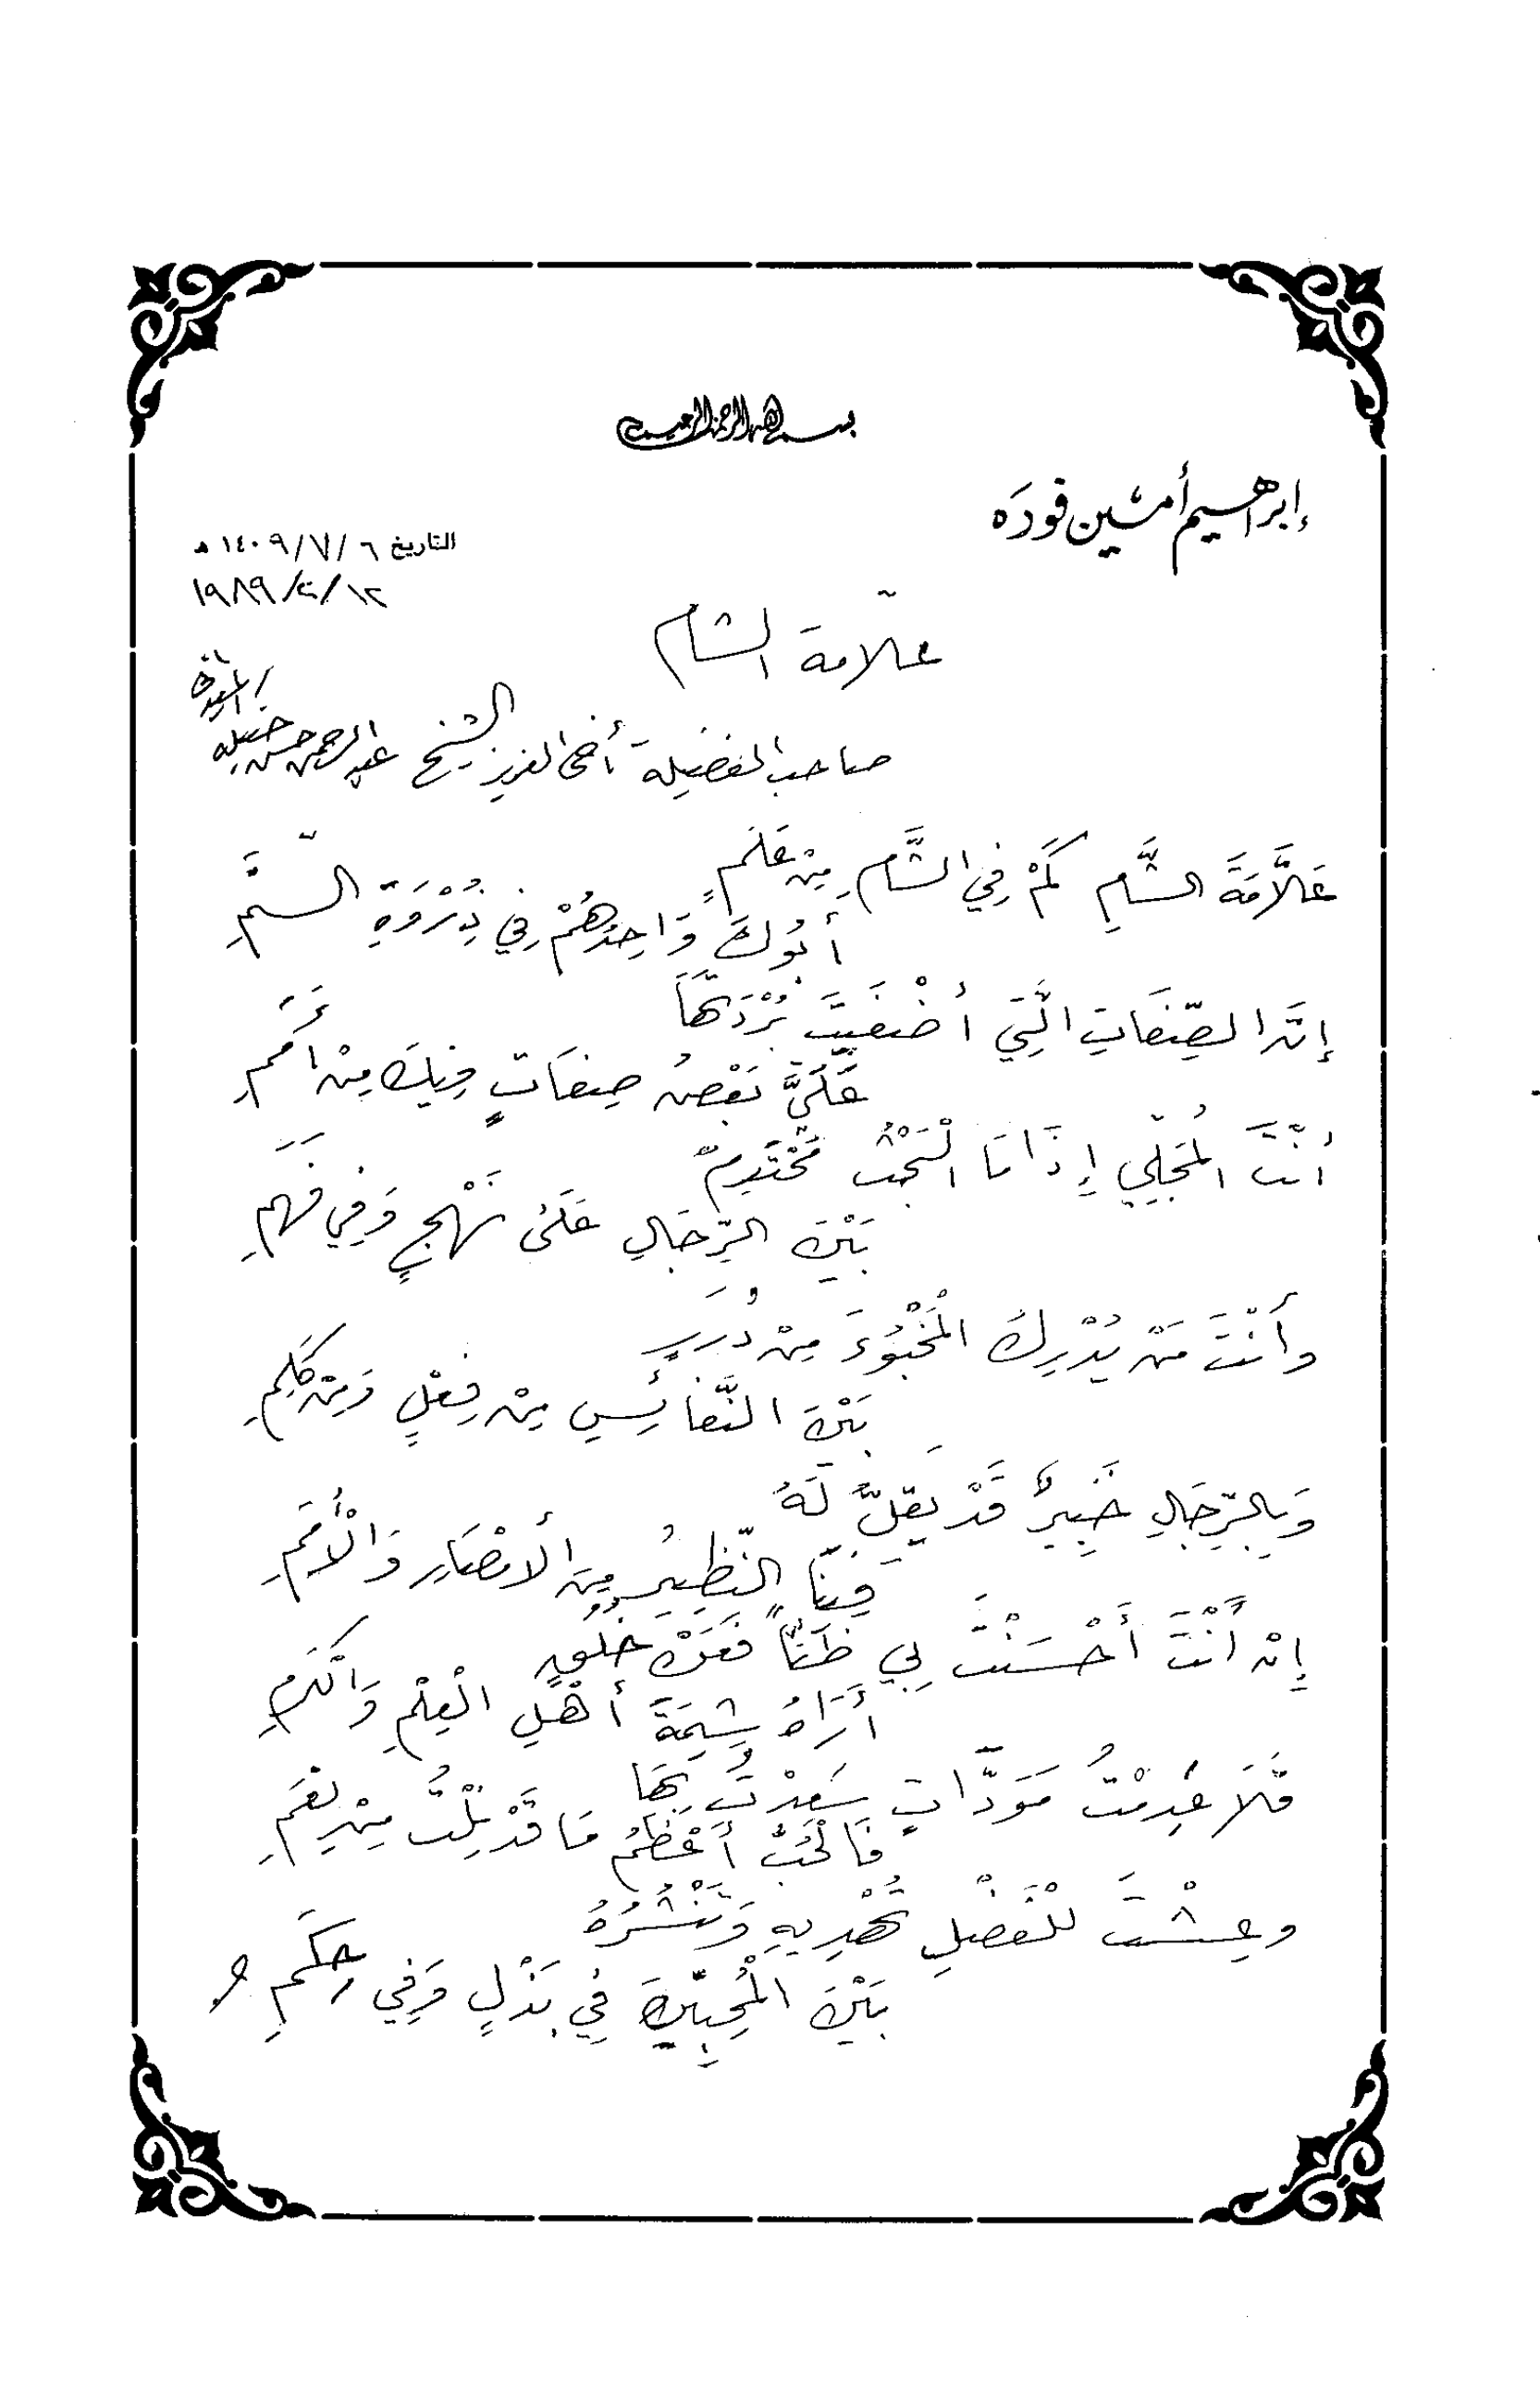 بسم الله الرحمن الرحيم
إبراهيم أمين فوده
التاريخ ٦ /٧/ ١٤٠٩ هـ
١٢/ ٢/ ١٩٨٩
علّامة الشام
صاحب الفضيلة أخي العزيز الشيخ عبدالرحمن حسن حبنكة الميداني
عَلَّامَةَ الشَّامِ كَمْ فِي الشَّامِ مِنْ عَلَمٍ
أَبُوكَ وَاحِدُهُمْ فِي ذِرْوَةِ السَّنَمِ
إِنَّ الصِّفَاتِ الَّتِي أَضْفَيْتَ بُرْدَتَهَا
عَلَيَّ بَعْضُ صِفَاتٍ فِيكَ مِنْ أَمَمِ
أَنْتَ الْمُجَلِّي إِذَا مَا الْبَحْثُ مُحْتَدِمٌ
بَيْنَ الرِّجَالِ عَلَى نَهْجٍ وَفِي فَهَمِ
وأَنْتَ مَنْ يُدْرِكُ الْمَخْبُوءَ مِنْ دُرَرٍ
بَيْنَ النَّفَائِسِ مِنْ فِعْلٍ وَمِنْ كَلِمِ
وَبِالرِّجَالِ خَبِيرٌ قَدْ يَقِلُّ لَهُ
فِينَا النَّظِيرُ مِنَ الأَمْصَارِ وَالْأُمَمِ
إِنْ أَنْتَ أَحْسَنْتَ بِي ظَنًّا فَعَنْ خُلُقٍ
أَرَاهُ شِيمَةَ أَهْلِ الْعِلْمِ وَالْكَرَمِ
فَلَا عَدِمْتُ مَوَدَّاتٍ سَعِدْتُ بِهَا
فَالْحُبُّ أَعْظَمُ مَا قَدْ نِلْتُ مِنْ نِعَمِ
وعِشْتَ لِلْفَضْلِ تُهْدِيهِ وَتَنْشُرُهُ
بَيْنَ الْمُحِبِّينَ فِي بَذْلٍ وَفِي حِكَمِ